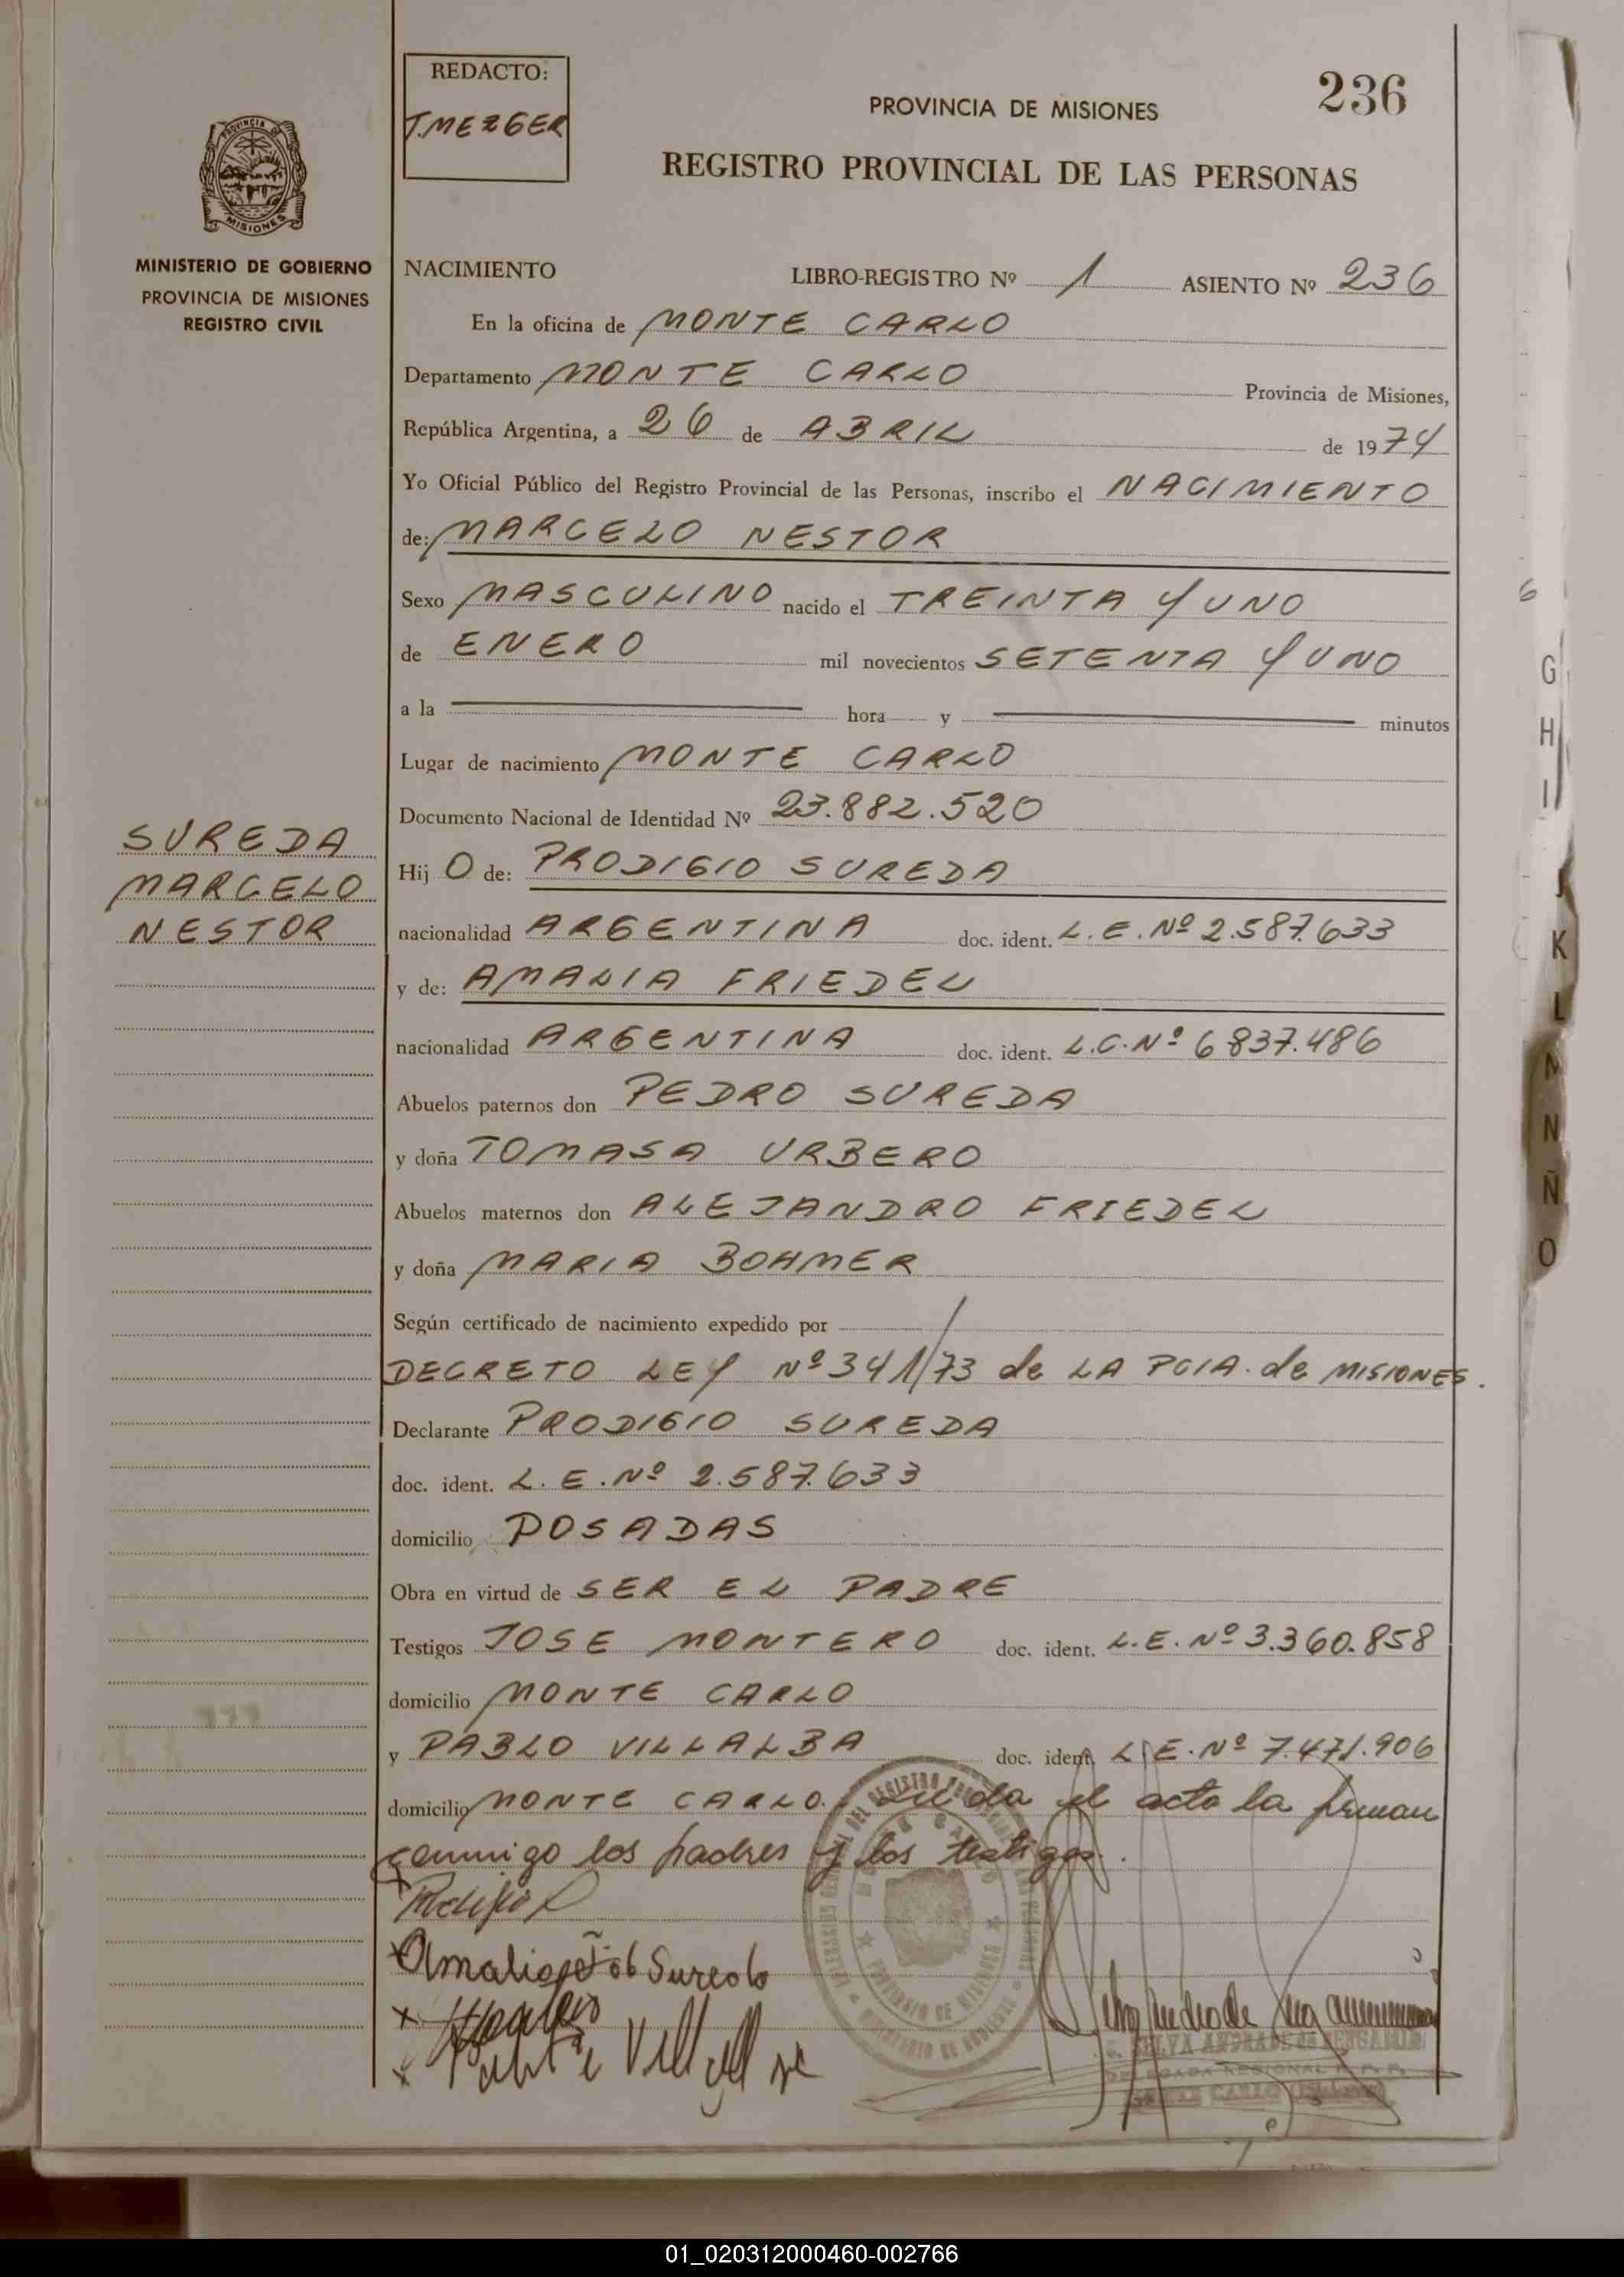 REDACTO:
T. MEZGER
236
PROVINCIA DE MISIONES
REGISTRO PROVINCIAL DE LAS PERSONAS
PROVINCIA DE
MISIONES
MINISTERIO DE GOBIERNO
PROVINCIA DE MISIONES
REGISTRO CIVIL
NACIMIENTO LIBRO-REGISTRO Nº 1 ASIENTO Nº 236
En la oficina de MONTE CARLO
Departamento MONTE CARLO Provincia de Misiones,
República Argentina, a 26 de ABRIL de 1974
Yo Oficial Público del Registro Provincial de las Personas, inscribo el NACIMIENTO
de: MARCELO NESTOR
Sexo MASCULINO nacido el TREINTA Y UNO
de ENERO mil novecientos SETENTA Y UNO
a la hora y minutos
Lugar de nacimiento MONTE CARLO
Documento Nacional de Identidad Nº 23.882.520
SUREDA
MARCELO
NESTOR
Hij O de: PRODIGIO SUREDA
nacionalidad ARGENTINA doc. ident. L.E. Nº 2.587.633
y de: AMALIA FRIEDEL
nacionalidad ARGENTINA doc. ident. L.C. Nº 6837.486
Abuelos paternos don PEDRO SUREDA
y doña TOMASA URBERO
Abuelos maternos don ALEJANDRO FRIEDEL
y doña MARIA BOHMER
Según certificado de nacimiento expedido por
DECRETO LEY Nº 341/73 de LA PCIA. de MISIONES.
Declarante PRODIGIO SUREDA
doc. ident. L.E. Nº 2.587.633
domicilio POSADAS
Obra en virtud de SER EL PADRE
Testigos JOSE MONTERO doc. ident. L.E. Nº 3.360.858
domicilio MONTE CARLO
y PABLO VILLALBA doc. ident. L.E. Nº 7.471.906
domicilio MONTE CARLO. el acta la firman
conmigo los padres y los testigos.
PROVINCIA DE MISIONES
G
H
I
J
K
L
M
N
Ñ
O
01_020312000460-002766